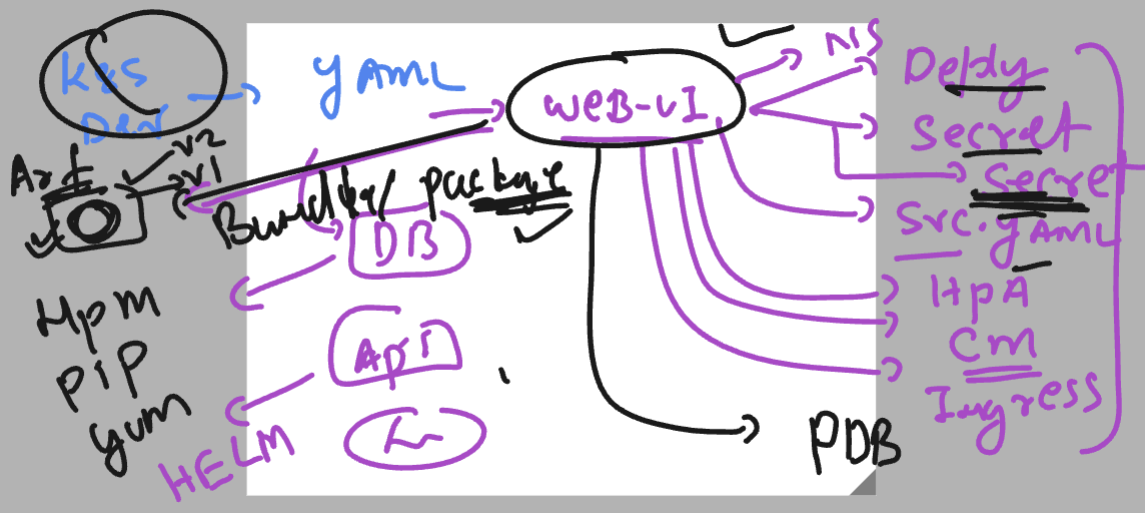 K8S
YAML
WEB-UI
NS
Deploy
Secret
Secret
Src.YAML
HPA
CM
Ingress
PDB
Art
V2
V1
Bundle/ package
DB
API
NPM
PIP
yum
HELM